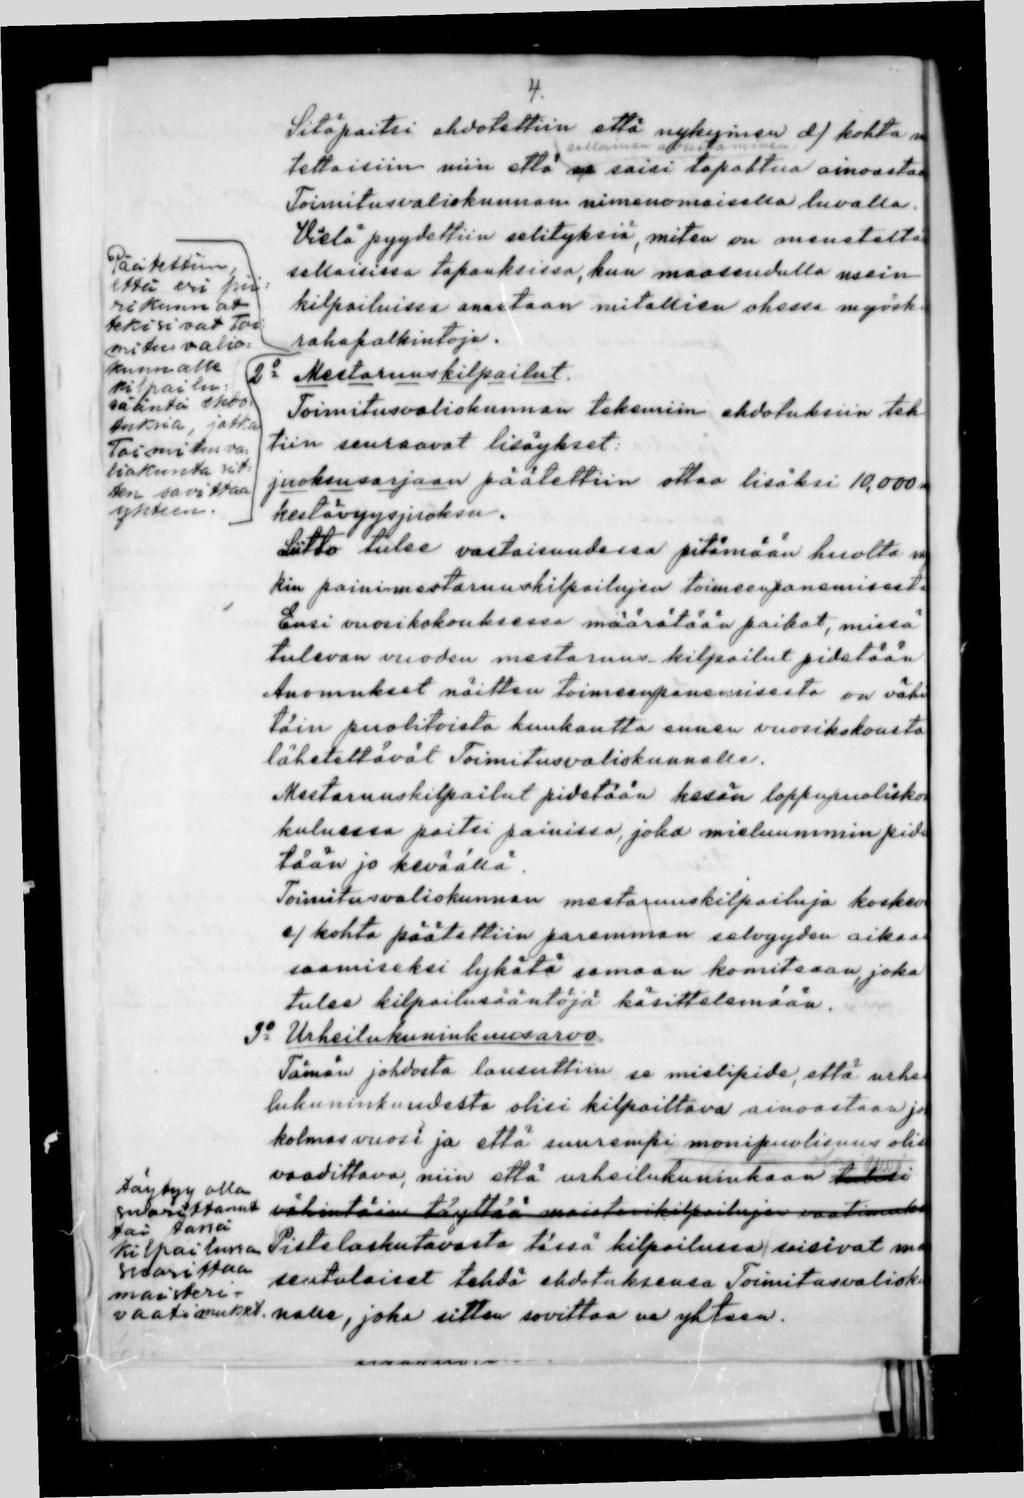 4.
Sitäpaitsi ehdotettiin että nykyinen d) kohta
sellainen
tettaisiin niin että se saisi tapahtua ainoastaa
Toimitusvaliokunnan nimenomaisella luvalla.
Vielä pyydettiin selityksiä, miten on meneteltä
sellaisissa tapauksissa, kun maaseudulla usein
kilpailuissa annetaan mitallien ohessa myösk
rahapalkintoja.
Päätettiin,
että eri pii-
rikunnat
tekisivat Toi-
mitusvalio-
kunnalle
kilpailu-
sääntö ehdo-
tuksia, jotka
Toimitusva-
liokunta sit-
ten sovittaa
yhteen.
2o Mestaruuskilpailut.
Toimitusvaliokunnan tekemiin ehdotuksiin teh
tiin seuraavat lisäykset:
juoksusarjaan päätettiin ottaa lisäksi 10,000
kestävyysjuoksu.
Liitto tulee vastaisuudessa pitämään huolta
kin painimestaruuskilpailujen toimeenpanemisesta
Ensi vuosikokouksessa määrätään paikat, missä
tulevan vuoden mestaruus-kilpailut pidetään
Anomukset näitten toimeenpanemisesta on vähi
täin puolitoista kuukautta ennen vuosikokousta
lähetettävät Toimitusvaliokunnalle.
Mestaruuskilpailut pidetään kesän loppupuolisko
kuluessa paitsi painissa, joka mieluummin pide
tään jo keväällä.
Toimitusvaliokunnan mestaruuskilpailuja koskeva
e) kohta päätettiin paremman selvyyden aikaa
saamiseksi lykätä samaan komiteaan, joka
tulee kilpailusääntöjä käsittelemään.
3o Urheilukuninkuusarvo.
Tämän johdosta lausuttiin se mielipide, että urhei
lukuninkuudesta olisi kilpailtava ainoastaan jo
kolmas vuosi ja että suurempi monipuolisuus olis
vaadittava, niin että urheilukuninkaan tulisi
vähintäin täyttää maisterikilpailujen vaatimuks
täytyy olla
suorittanut
tai tässä
kilpailussa
suorittaa
maisteri-
vaatimukset.
Pistelaskutavasta tässä kilpailussa saisivat ma
seutulaiset tehdä ehdotuksensa Toimitusvaliok
nalle, joka sitten sovittaa ne yhteen.